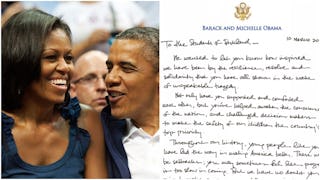 BARACK AND MICHELLE OBAMA
10 March 20
To the Students of Parkland —
We wanted to let you know how inspired
we have been by the resilience, resolve and
solidarity that you have all shown in the wake
of unspeakable tragedy.
Not only have you supported and comforted
each other, but you've helped awaken the conscience
of the nation, and challenged decision-makers
to make the safety of our children the country's
top priority.
Throughout our history, young people like you
have led the way in making America better. There may
be setbacks; you may sometimes feel like progress
is too slow in coming. But we have no doubt you